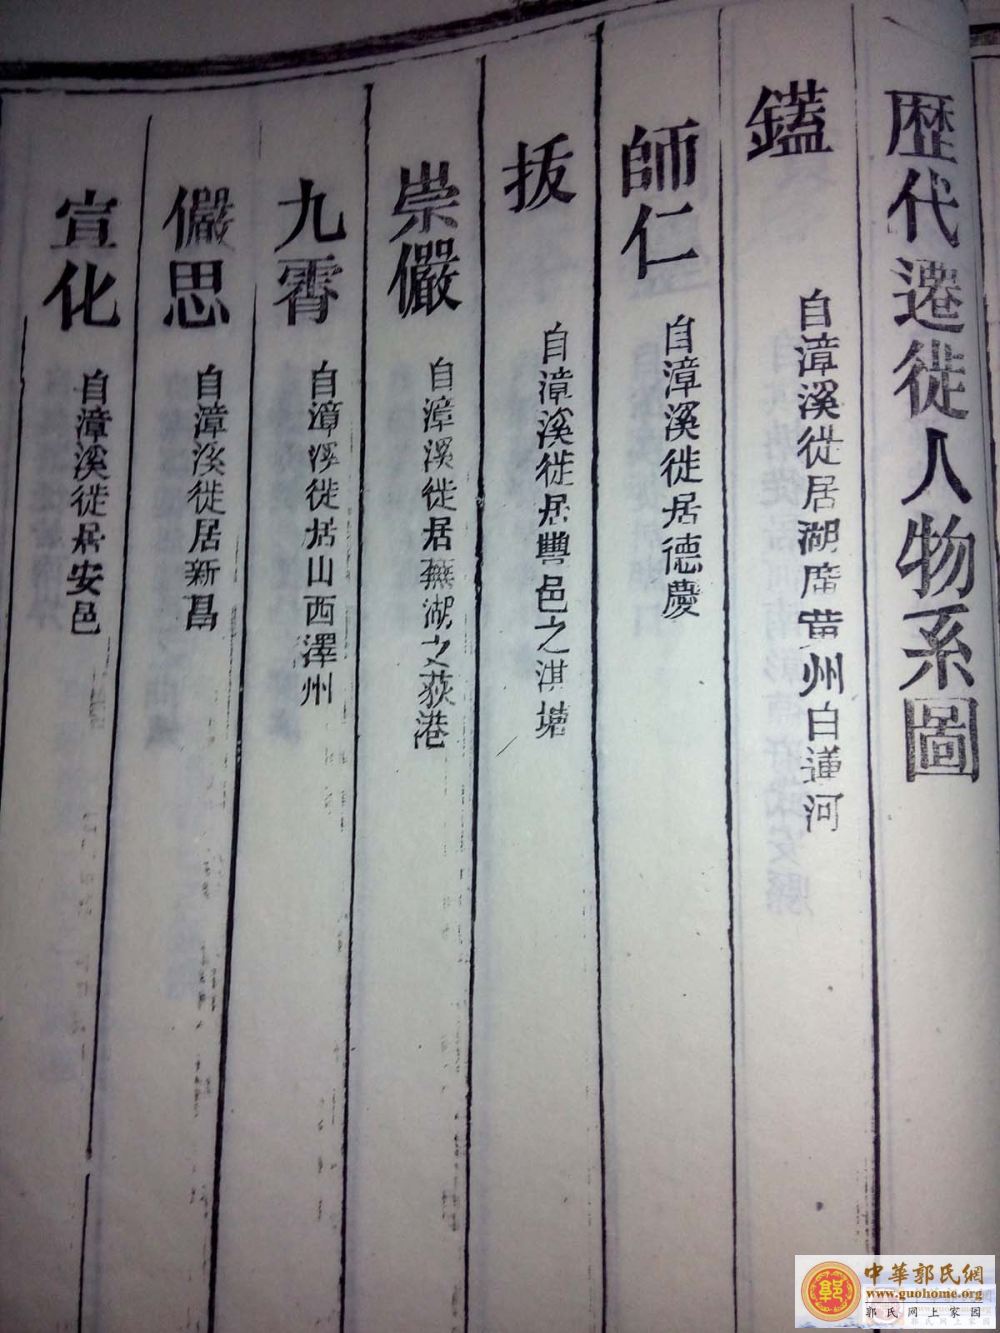 歴代遷徙人物系圖
鑑 自漳溪徙居湖廣黄州白蓮河
師仁 自漳溪徙居德慶
拔 自漳溪徙居興邑之淇塘
崇儼 自漳溪徙居蕪湖之荻港
九霄 自漳溪徙居山西澤州
儼思 自漳溪徙居新昌
宣化 自漳溪徙居安邑
中華郭氏網
www.guohome.org
郭氏网上家园